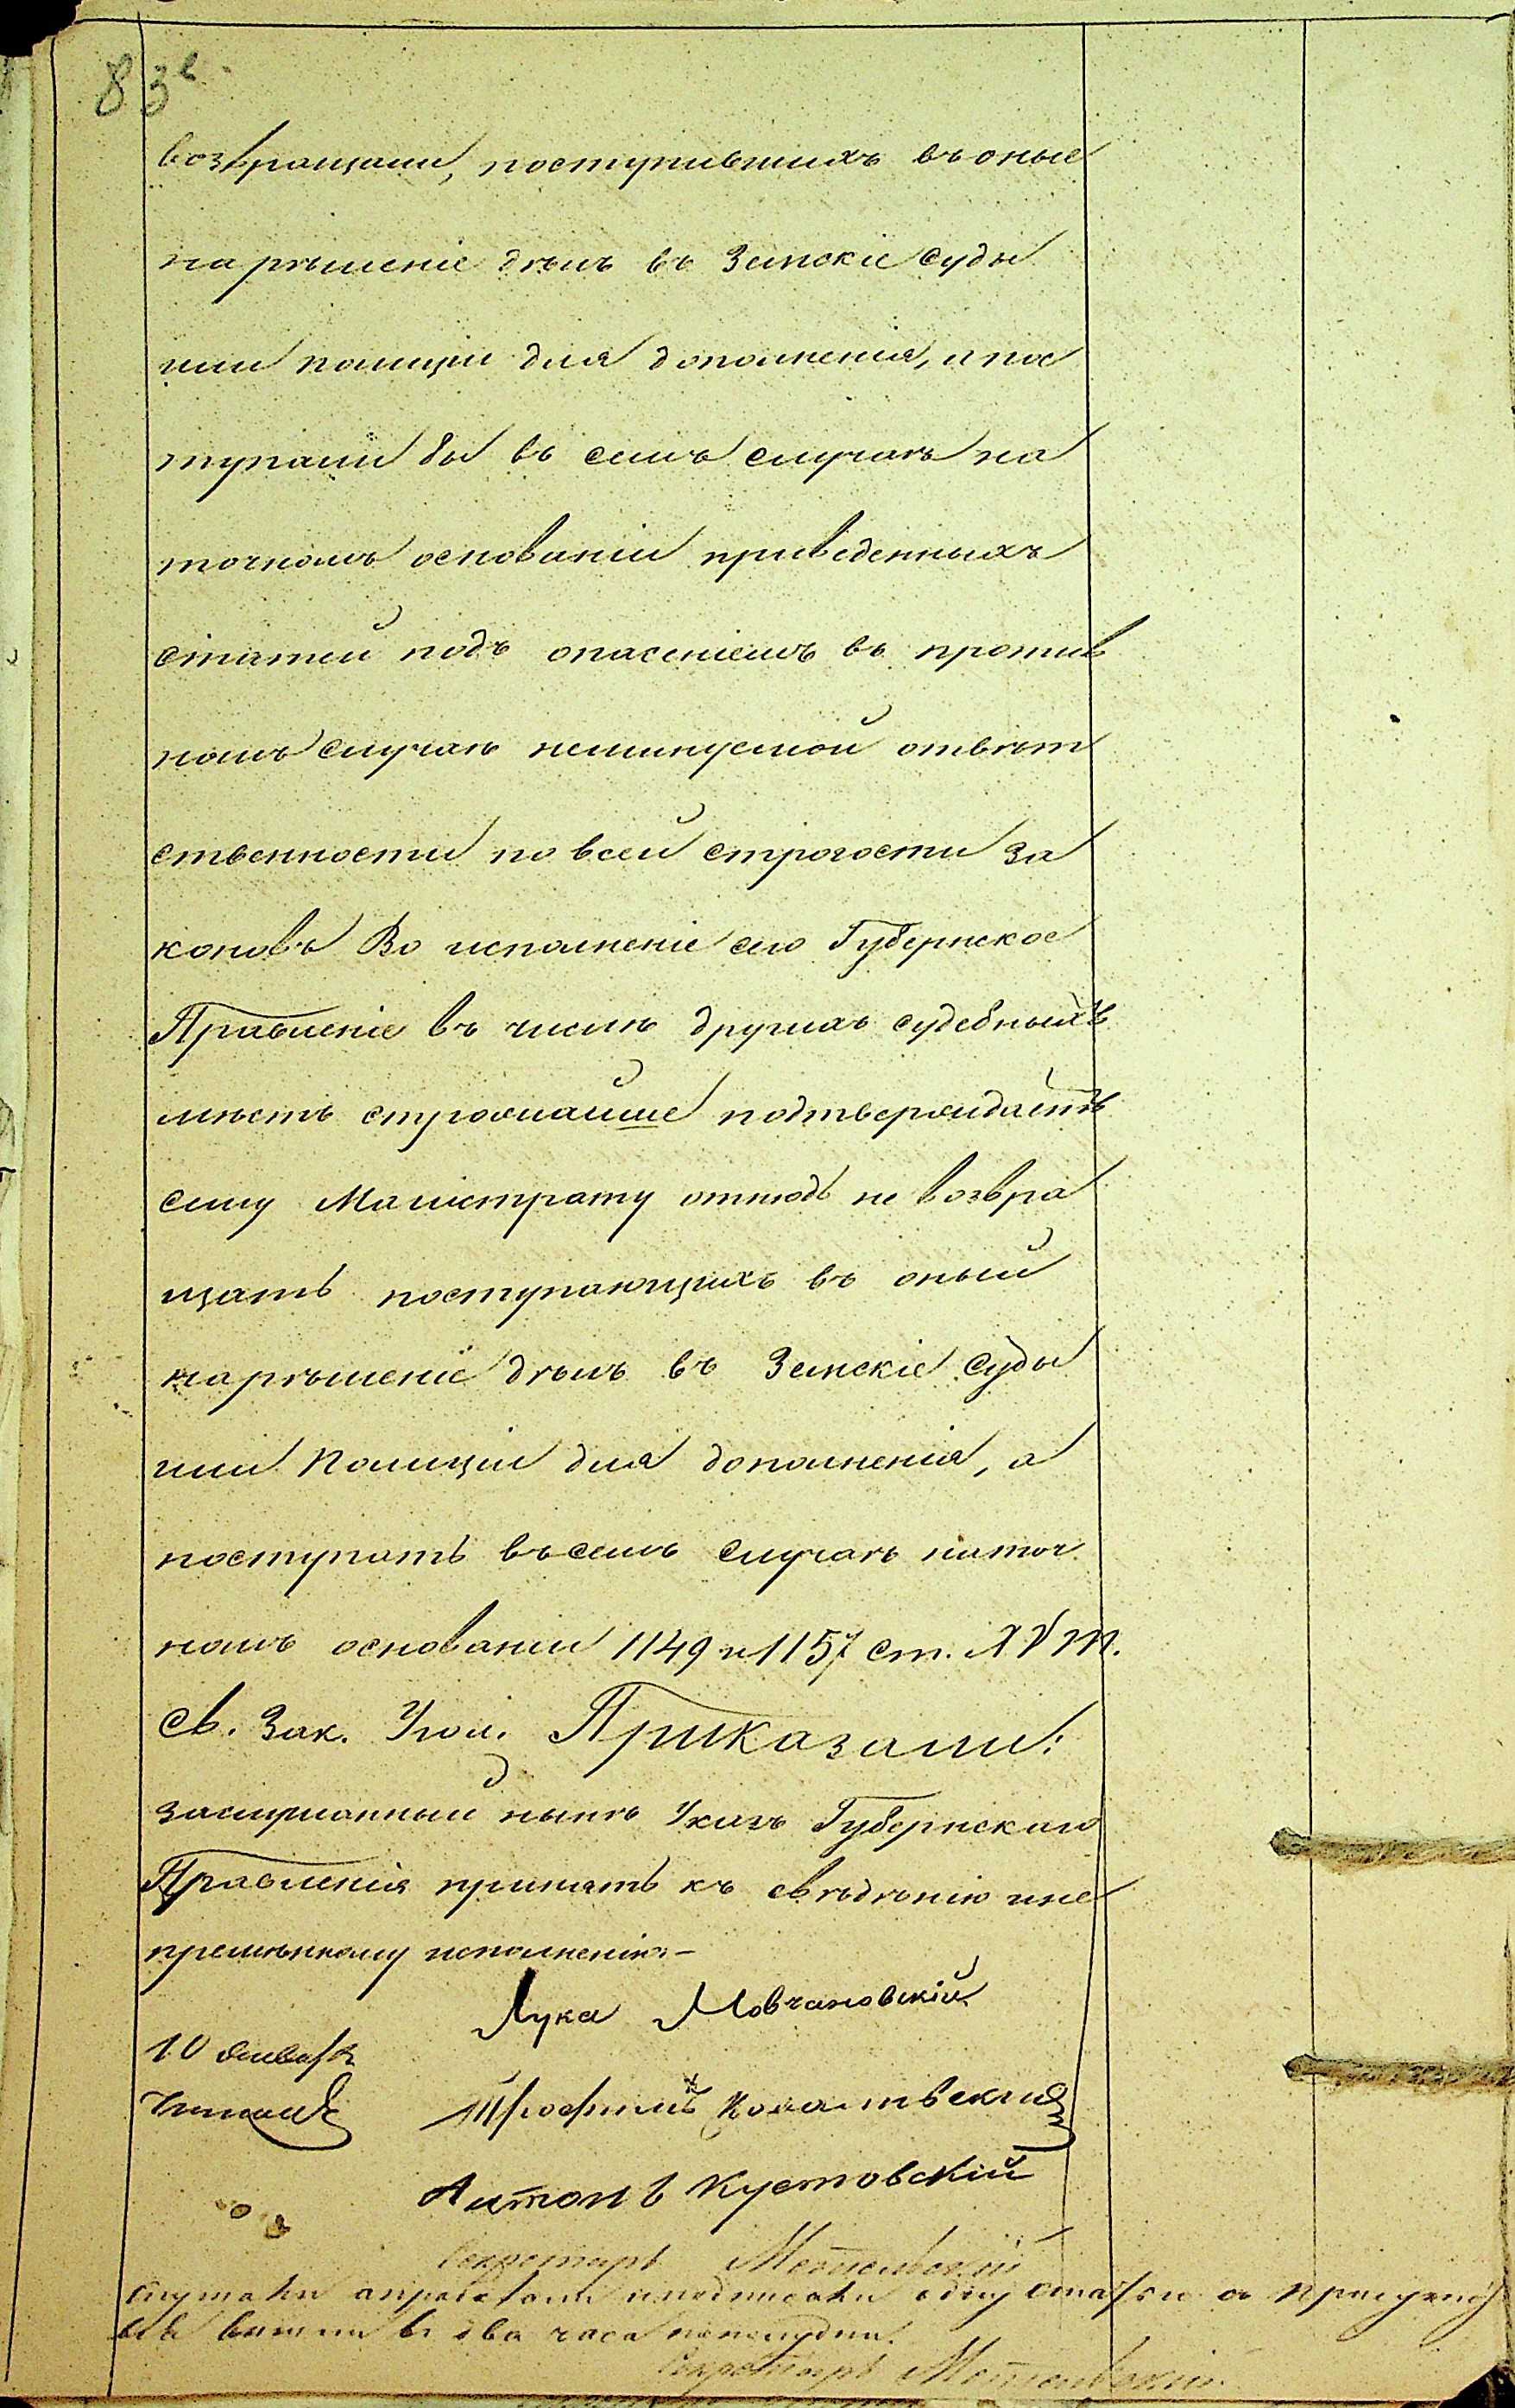 83
возвращали, поступившихъ въ оные
на рѣшеніе дѣлъ въ Земскіе суды
или полиціи для дополненія, а пос
тупали бы въ семъ случаѣ на
точномъ основаніи приведенныхъ
статей подъ опасеніемъ въ против
номъ случаѣ неминуемой отвѣт
ственности по всей строгости за
коновъ Во исполненіе сего Губернское
Правленіе въ числѣ другихъ судебныхъ
мѣстъ строжайше подтверждаетъ
сему Магистрату отнюдь не возвра
щать поступающихъ въ оный
на рѣшеніе дѣлъ въ Земскіе Суды
или Полиціи для дополненія, а
поступать въ семъ случаѣ на точ
номъ основаніи 1149 и 1157 ст. XV т.
Св. Зак. Угол. Приказали:
заслушанный нынѣ Указъ Губернскаго
Правленія принять къ свѣдѣнію и не
премѣнному исполненію.-
Лука Мовчановскій
10 Января
Читалъ
Трофимъ
Антонъ Кустовскій
Секретарь
слушали и подписали одну статью а
вышли въ два часа пополудни.
Секретарь